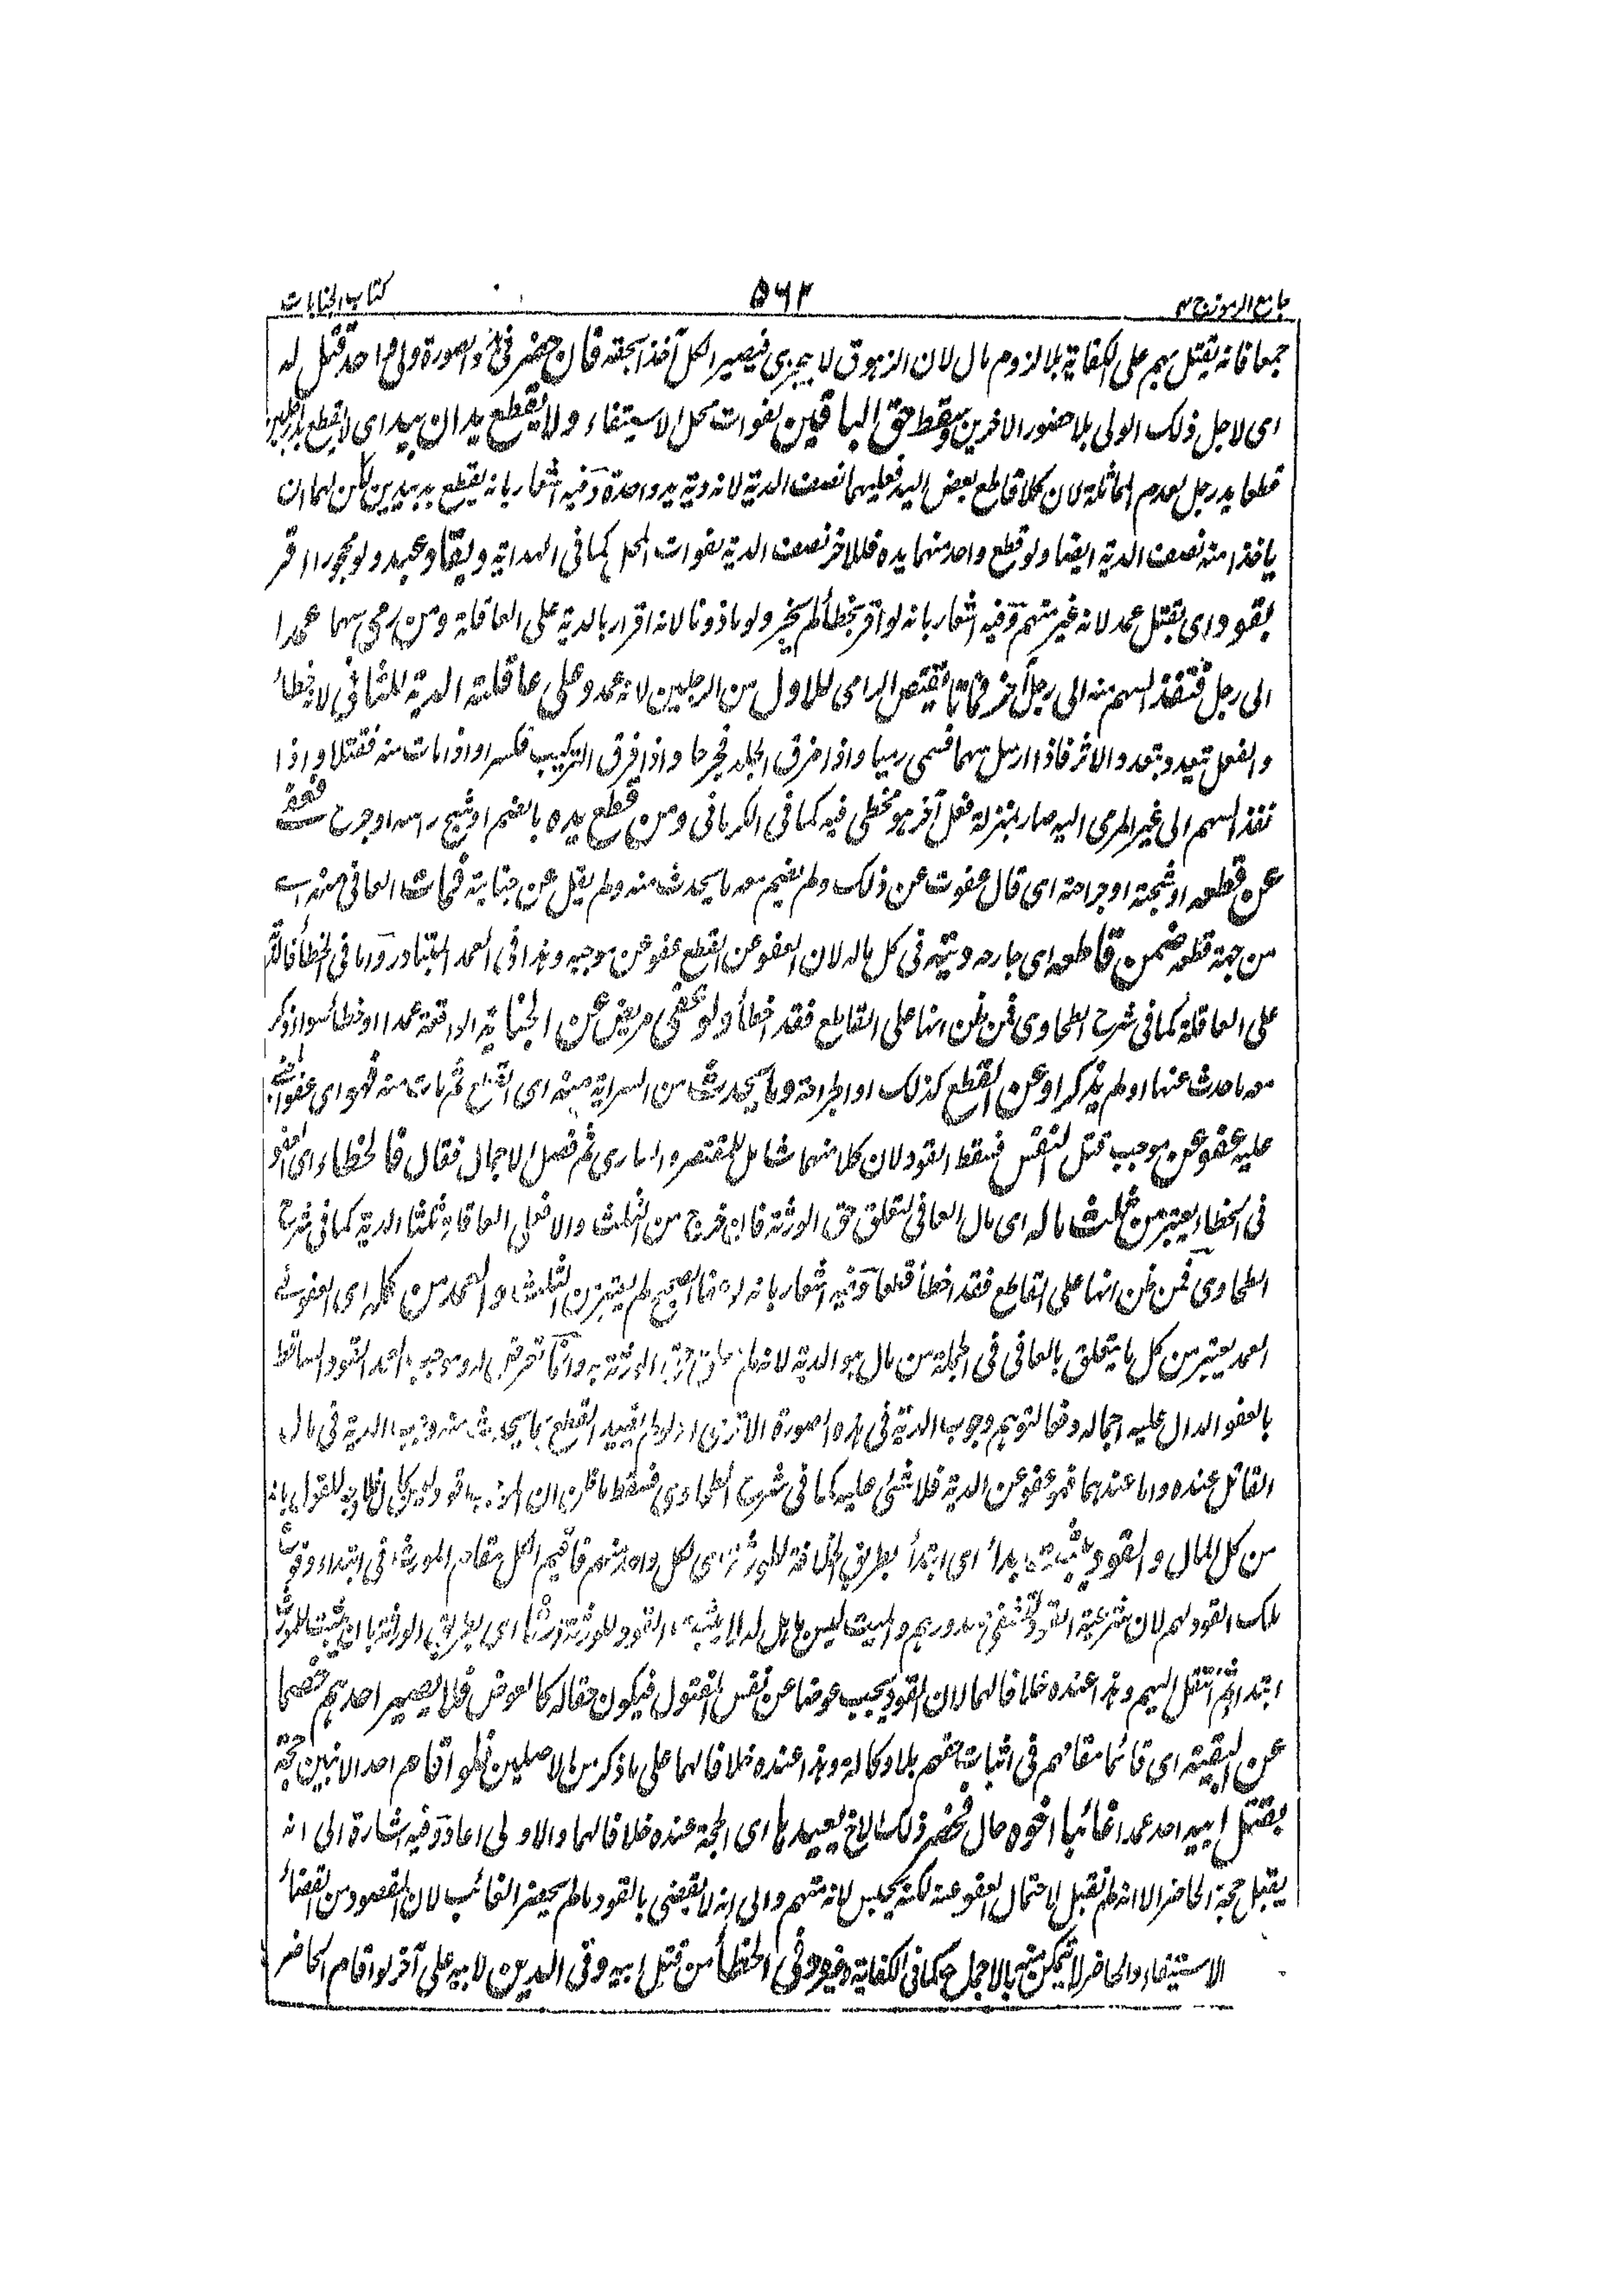 جامع الرموز ج ٢ ٥٦٢ كتاب الجنايات
جمعا فانه يقتل بهم على الكفاية بلا لزوم مال لان الزهوق لا يتجزى فيصير الكل آخذا بحقه فان حضر في هذه الصورة ولى واحد قتل له
اى لاجل ذلك الولى بلا حضور الاخرين وسقط حق الباقين لفوات محل الاستيفاء ولا يقطع يدان بيد اى لا يقطع يدا رجلين
قطعا يد رجل لعدم المماثلة لان كلا قاطع بعض اليد فعليهما نصف الدية لانه دية يد واحدة وفيه اشعار بانه يقطع يد بيدين لكن لهما ان
ياخذا منه نصف الدية ايضا ولو قطع واحد منهما يده فللاخر نصف الدية لفوات المحل كما فى الهداية ويقاد عبد ولو محجورا اقر
بقود اى بقتل عمد لانه غير متهم وفيه اشعار بانه لو اقر بخطأ لم يجز ولو ماذونا لانه اقرار بالدية على العاقلة ومن رمى سهما عمدا
الى رجل فنفذ السهم منه الى رجل آخر فماتا يقتص الرامى للاول من الرجلين لانه عمد وعلى عاقلته الدية للثانى لانه خطاء
والفعل يتعدد بتعدد الاثر فاذا ارسل سهما فسمى رميا واذا خرق الجلد فجرحا واذا فرق التركيب فكسرا واذا مات منه فقتلا واذا
نفذ السهم الى غير المرمى اليه صار بمنزلة فعل آخر هو مخطى فيه كما فى الكرمانى ومن قطع يده بالضم او شج راسه او جرح فعفى
عن قطعه او شجته او جراحته اى قال عفوت عن ذلك ولم يضم معه ما يحدث منه ولم يقل عن جناية فمات العافى منه اے
من جهة قطعه ضمن قاطعه اى جارحه ديته فى كل ماله لان العفو عن القطع عفو عن موجبه وهذا فى العمد المتبادر واما فى الخطأ فالدية
على العاقلة كما فى شرح الطحاوى فمن ظن انها على القاطع فقد اخطأ ولو عفى مريض عن الجناية الواقعة عمدا او خطأ سواء ذكر
معه ما حدث عنها او لم يذكر او عن القطع كذلك او الجراحة وما يحدث من السراية منه اى القطع ثم مات منه فهو اى عفو
عليه عفو عن موجب قتل النفس فسقط القود لان كلا منهما شامل للمقتصر والسارى ثم فصل الاجمال فقال فالخطاء اى العفو
فى الخطاء يعتبر من ثلث ماله اى مال العافى لتعلق حق الورثة فان خرج من الثلث والا فعلى العاقلة ثلثا الدية كما فى شرح
الطحاوى فمن ظن انها على القاطع فقد اخطأ قطعا وفيه اشعار بانه لو عفا الصحيح لم يعتبر من الثلث والعمد من كله اى العفو فے
العمد يعتبر من كل ما يتعلق بالعافى فى الجملة من مال هو الدية لانه لم يتعلق حق الورثة به وانما تعرض له وموجب العمد القود الساقط
بالعفو الدال عليه اجماله دفعا لتوهم وجوب الدية فى هذه الصورة الا ترى انه لو لم يقيد القطع بما يحدث منه وجب الدية فى مال
القاتل عنده واما عندهما فهو عفو عن الدية فلا شئ عليه كما فى شرح الطحاوى فسقط ما ظن ان الموجب القود ولم يكن مالا فلا وجه للقول بانه
من كل المال والقود يثبت بدأ اى ابتدأ بطريق الخلافة للورثة اى لكل واحد منهم فاقيم الكل مقام المورث فى ابتداء وقوع
ملك القود لهم لان شرعية القود لتشفى صدورهم والميت ليس باهل له لا يثبت القود للورثة ارثا اى بطريق الوراثة بان يثبت للمورث
ابتداء ثم انتقل اليهم وهذا عنده خلافا لهما لان القود يجب عوضا عن نفس المقتول فيكون حقا له كالعوض فلا يصير احدهم خصما
عن البقية اى قائما مقامهم فى اثبات حقهم بلا وكالة وهذا عنده خلافا لهما على ما ذكر من الاصلين فلو اقام احد الابنين حجة
بقتل ابيه احد عمدا غائبا اخوه حال فحضر ذلك الاخ يعيدها اى الحجة عنده خلافا لهما والاولى اعاد وفيه اشارة الى انه
يقبل حجة الحاضر الا انه لم يقتل لاحتمال العفو عنه لكنه يحبس لانه متهم والى انه لا يقضى بالقود ما لم يحضر الغائب لان المقصود من القضاء
الاستيفاء والحاضر لا يتمكن منه بالاجماع كما فى الكفاية وغيره وفى الخطأ من قتل ابيه وفى الدين لابيه على آخر لو اقام الحاضر